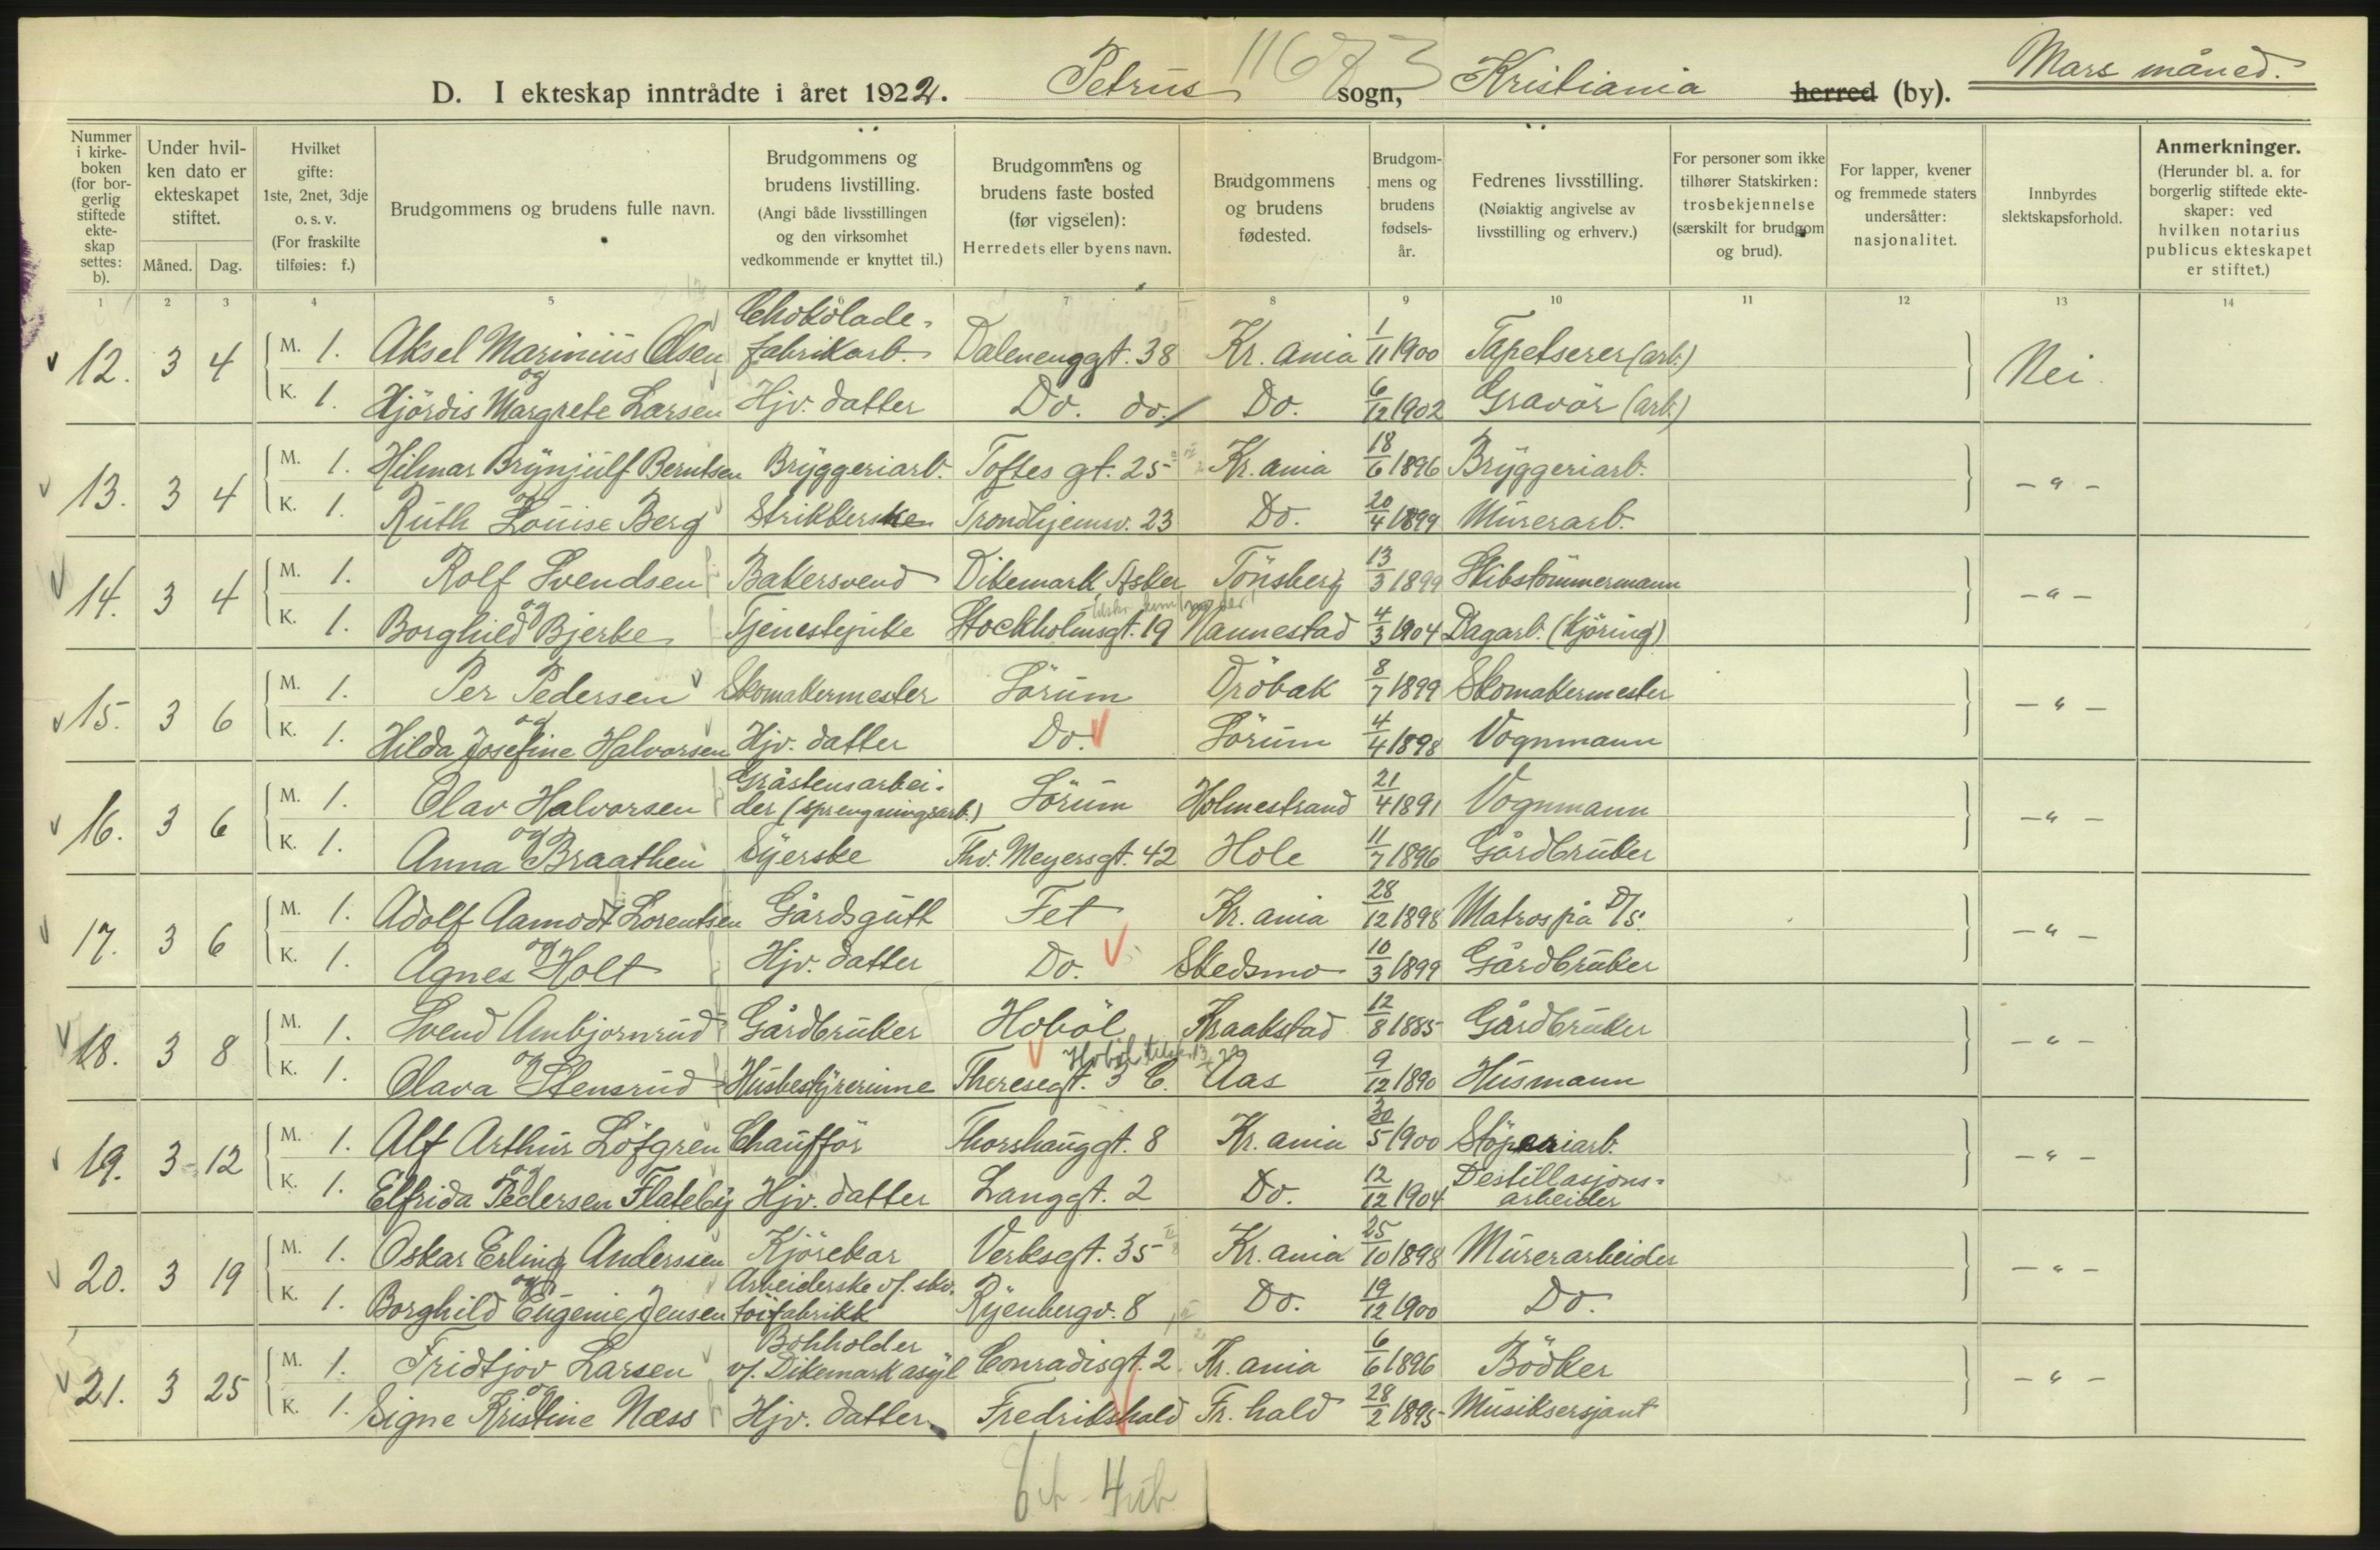 Mars måned.
D. I ekteskap inntrådte i året 1922. Petrus sogn, Kristiania herred (by).
11673
Nummer i kirke-boken (for bor-gerlig stiftede ekte-skap settes: b).
Under hvil-ken dato er ekteskapet stiftet.
Måned. Dag.
Hvilket gifte: 1ste, 2net, 3dje o. s. v. (For fraskilte tilføies: f.)
Brudgommens og brudens fulle navn.
Brudgommens og brudens livstilling. (Angi både livsstillingen og den virksomhet vedkommende er knyttet til.)
Brudgommens og brudens faste bosted (før vigselen): Herredets eller byens navn.
Brudgommens og brudens fødested.
Brudgom-mens og brudens fødsels-år.
Fedrenes livsstilling. (Nøiaktig angivelse av livsstilling og erhverv.)
For personer som ikke tilhører Statskirken: trosbekjennelse (særskilt for brudgom og brud).
For lapper, kvener og fremmede staters undersåtter: nasjonalitet.
Innbyrdes slektskapsforhold.
Anmerkninger. (Herunder bl. a. for borgerlig stiftede ekte-skaper: ved hvilken notarius publicus ekteskapet er stiftet.)
1 2 3 4 5 7 8 9 10 11 12 13 14
12. 3 4 M. 1. Aksel Marinius Olsen Chokolade-fabrikarb. Dalenenggt. 38 Kr.ania 1/11 1900 Tapetserer (arb.) Nei.
og
K. 1. Hjördis Margrete Larsen Hjv. datter Do. do. Do. 6/12 1902 Gravör (arb.)
13. 3 4 M. 1. Hilmar Brynjulf Berntsen Bryggeriarb. Toftes gt. 25 Kr.ania 18/6 1896 Bryggeriarb. - " -
og
K. 1. Ruth Louise Berg Strikkerske Trondhjemsv. 23 Do. 20/4 1899 Murerarb.
14. 3 4 M. 1. Rolf Svendsen Bakersvend Dikemark, Asker Tönsberg 13/3 1899 Skibstömmermann - " -
og
K. 1. Borghild Bjerke Tjenestepike Stockholmsgt. 19 Nannestad 4/3 1904 Dagarb. (Kjöring)
15. 3 6 M. 1. Per Pedersen Skomakermester Sörum Dröbak 8/7 1899 Skomakermester - " -
og
K. 1. Hilda Josefine Halvorsen Hjv. datter Do. Sörum 4/4 1898 Vognmann
16. 3 6 M. 1. Olav Halvorsen Gråstensarbei-der (sprengningsarb.) Sörum Holmestrand 21/4 1891 Vognmann - " -
og
K. 1. Anna Braathen Syerske Thv. Meyersgt. 42 Hole 11/7 1896 Gårdbruker
17. 3 6 M. 1. Adolf Aamodt Lorentsen Gårdsgutt Fet Kr.ania 28/12 1898 Matros på D/S. - " -
og
K. 1. Agnes Holt Hjv. datter Do. Skedsmo 10/3 1899 Gårdbruker
18. 3 8 M. 1. Svend Ambjørnrud Gårdbruker Hoböl Kraakstad 12/8 1885 Gårdbruker - " -
og Hoböl
K. 1. Olava Stensrud Husbestyrerinne Theresegt. 3 C. Aas 9/12 1890 Husmann
19. 3 12 M. 1. Alf Arthur Löfgren Chaufför Thorshauggt. 8 Kr.ania 30/5 1900 Støperiarb. - " -
og
K. 1. Elfrida Pedersen Flateby Hjv. datter Langgt. 2 Do. 12/12 1904 Destillasjons-arbeider
20. 3 19 M. 1. Oskar Erling Anderssen Kjörekar Verksgt. 35 Kr.ania 25/10 1898 Murerarbeider - " -
og
K. 1. Borghild Eugenie Jensen Arbeiderske v/. sko-töifabrikk Ryenbergv. 8 Do. 19/12 1900 Do.
21. 3 25 M. 1. Fridtjov Larsen Bokholder v/. Dikemark asyl Conradisgt. 2 Kr.ania 6/6 1896 Bödker - " -
og
K. 1. Signe Kristine Næss Hjv. datter Fredrikshald Fr.hald 28/2 1895 Musiksersjant